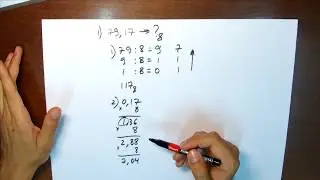 1) 79,17 → ?₈
1) 79 : 8 = 9 7
9 : 8 = 1 1
1 : 8 = 0 1
117₈
2) 0,17
× 8
1,36
× 8
2,88
× 8
2,04